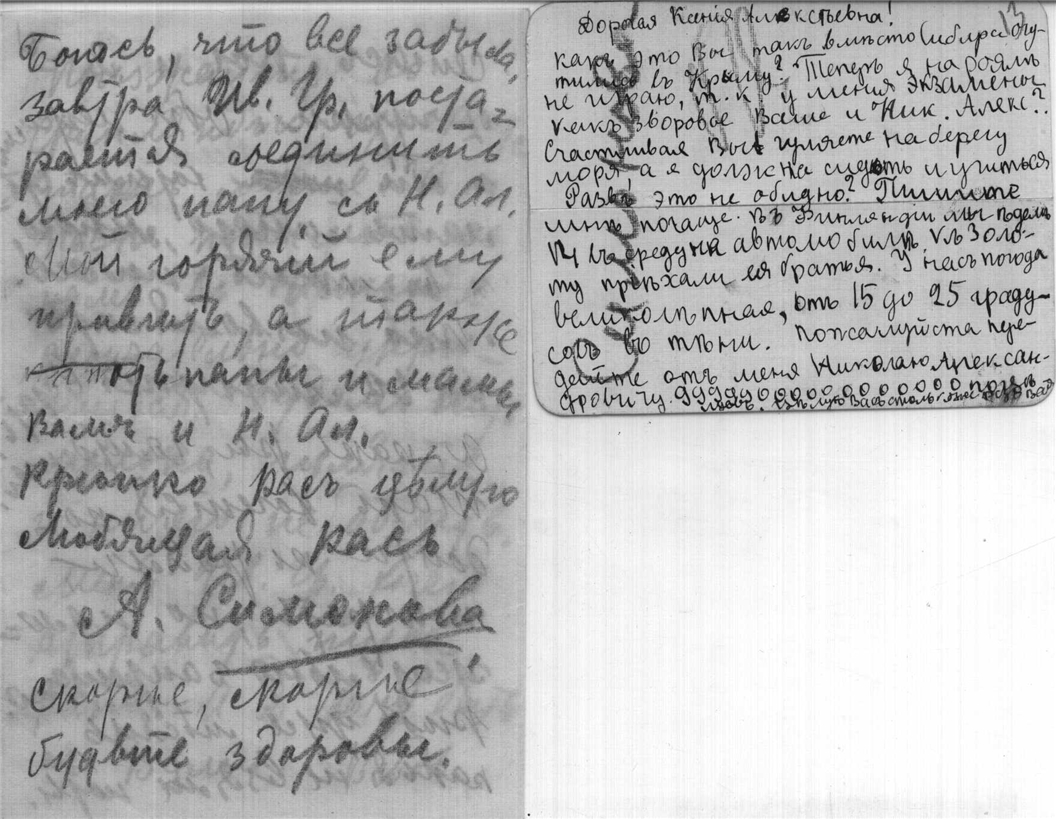 Боюсь, что все забыла,
завтра Ив. Гр. поста-
рается соединить
моего папу съ Н. Ал.
Мой горячій ему
привѣтъ, а также
отъ папы и мамы
Вамъ и Н. Ал.
Крѣпко васъ цѣлую
Любящая васъ
А. Симонова
скорѣе, скорѣе
будьте здоровы.
Дорогая Ксенія Алексѣевна!
какъ это Вы такъ вмѣсто Сибири очу-
тились въ Крыму? Теперь я на роялѣ
не играю, т. к. у меня экзамены
какъ здоровье Ваше и Ник. Алекс?
Счастливая Вы гуляете на берегу
моря а я должна сидѣть и учиться
Развѣ это не обидно? Пишите
мнѣ почаще. Въ Финляндіи мы
въ среду на автомобилѣ. Къ Золо-
ту пріѣхали ея братья. У насъ погода
великолѣпная, отъ 15 до 25 граду-
совъ въ тѣни. Пожалуйста пере-
дайте отъ меня Николаю Алексан-
дровичу
цѣлую Васъ столько же разъ
13